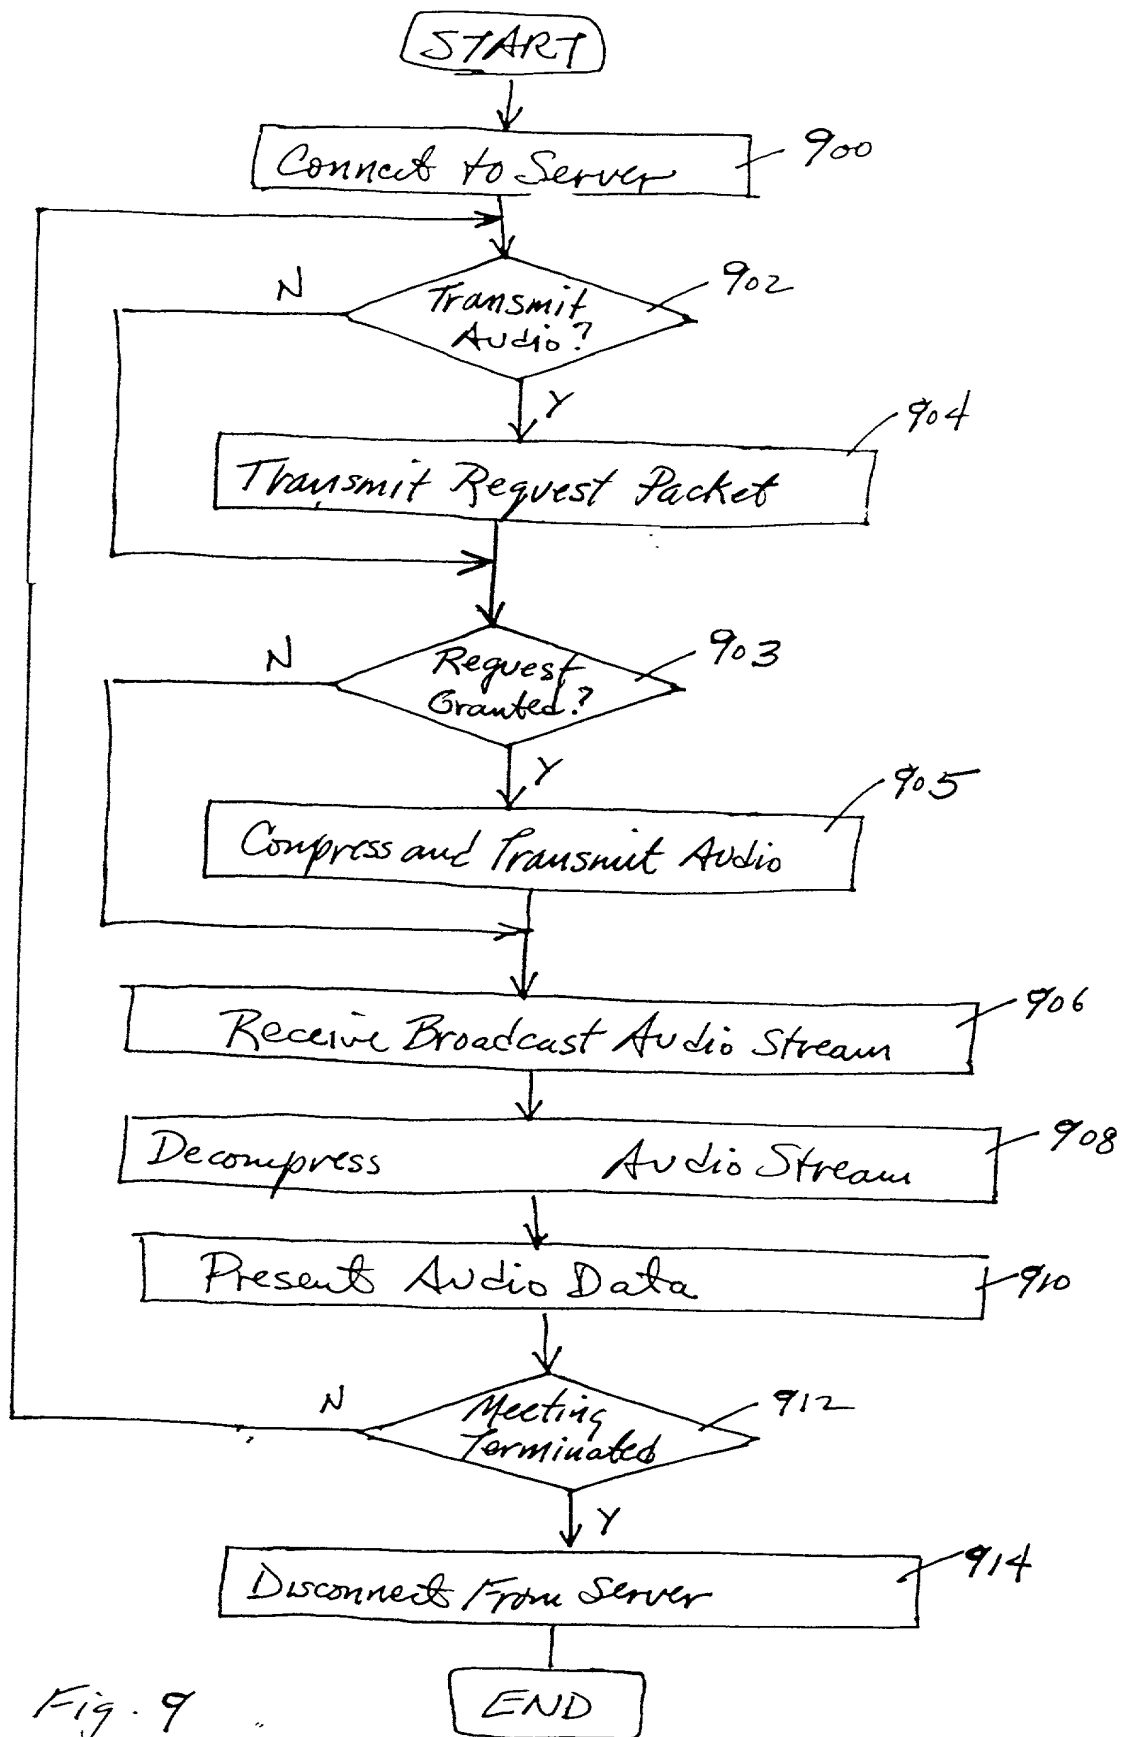 START
Connect to Server
900
N
Transmit
Audio?
902
Y
904
Transmit Request Packet
N
Request
Granted?
903
Y
905
Compress and Transmit Audio
906
Receive Broadcast Audio Stream
908
Decompress Audio Stream
Present Audio Data
910
N
Meeting
Terminated
912
Y
914
Disconnect From Server
END
Fig. 9